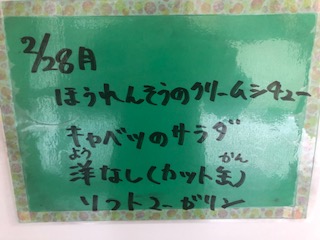 2/28月
ほうれんそうのクリームシチュー
キャベツのサラダ
洋なし(カット缶)
よう かん
ソフトマーガリン